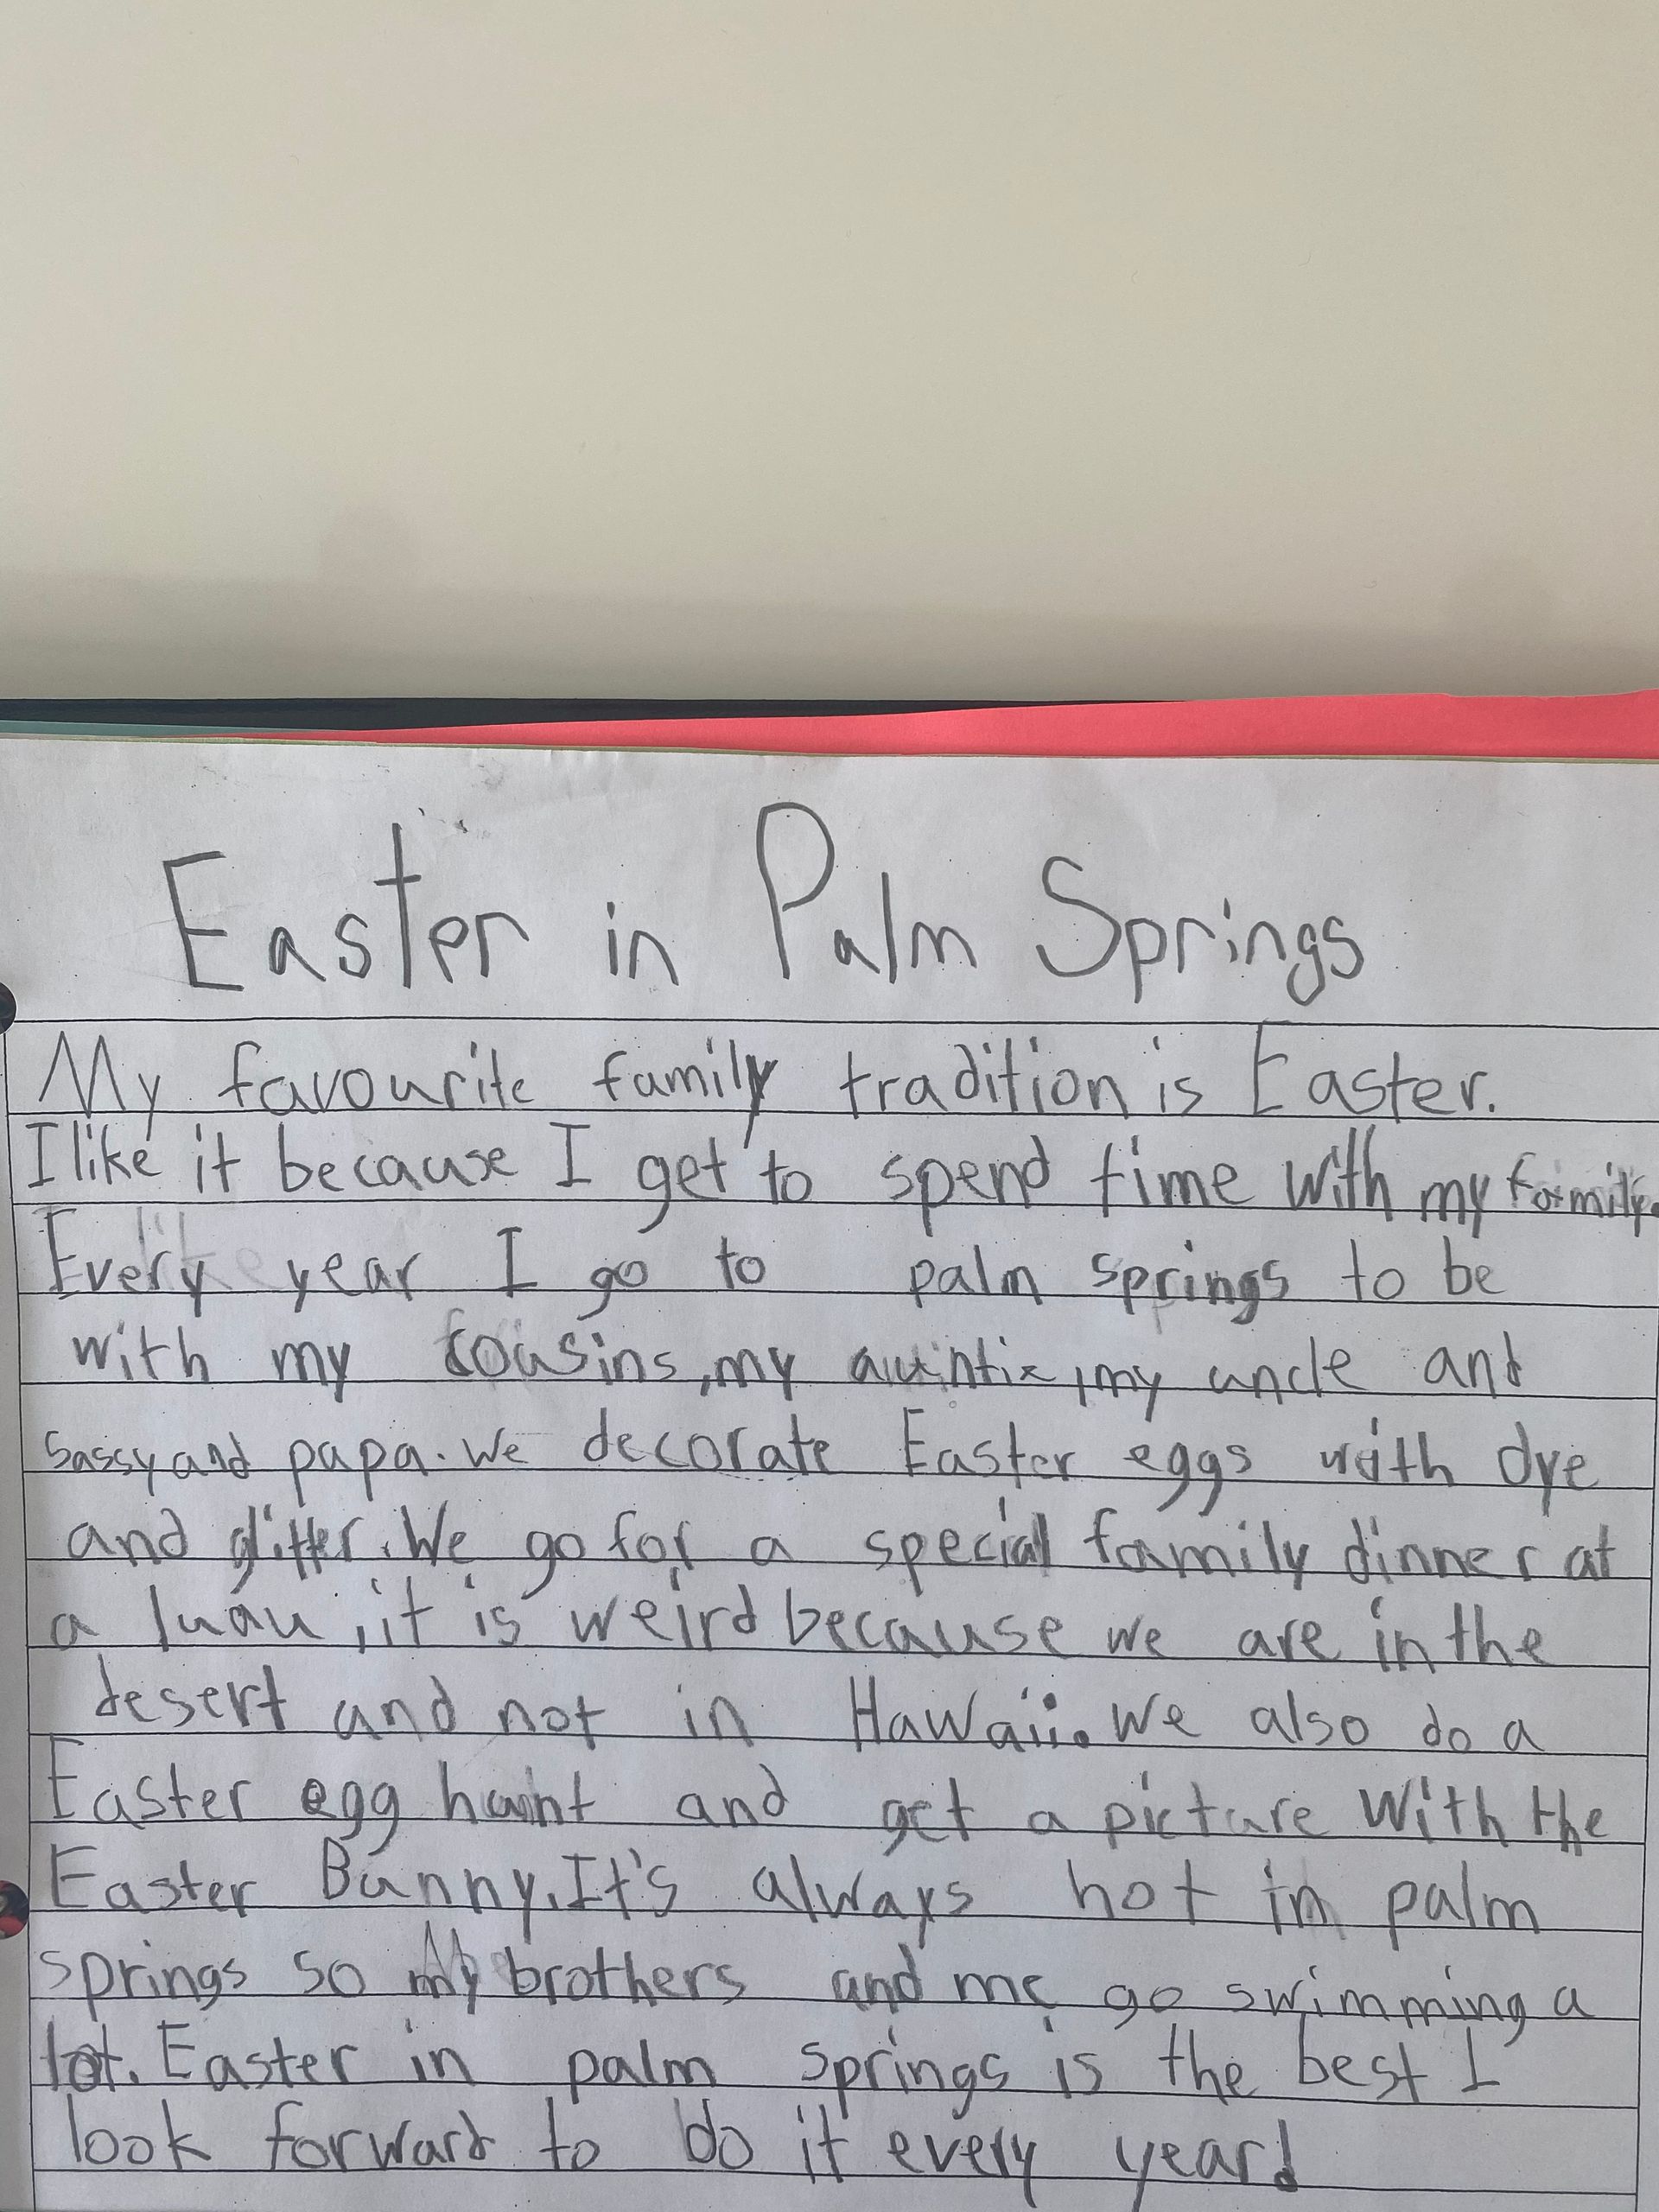 Easter in Palm Springs
My favourite family tradition is Easter.
I like it because I get to spend time with my family.
Every year I go to palm springs to be
with my cousins, my auntie, my uncle and
Sassy and papa. We decorate Easter eggs with dye
and glitter. We go for a special family dinner at
a luau, it is weird because we are in the
desert and not in Hawaii. We also do a
Easter egg hunt and get a picture with the
Easter Bunny. It's always hot in palm
springs so my brothers and me go swimming a
lot. Easter in palm springs is the best I
look forward to do it every year!